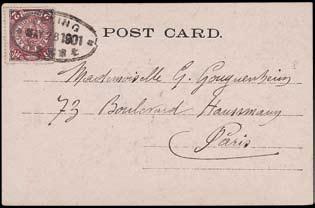 POST CARD.
MAY 28 1901
Mademoiselle G. Gouguenheim
73 Boulevard Haussmann
Paris